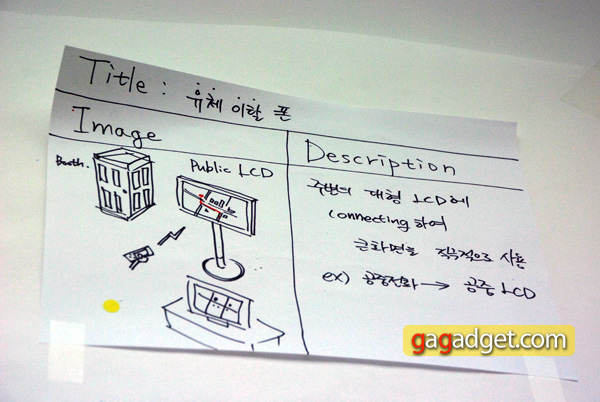 Title : 유체 이탈 폰
Image
Description
Booth.
Public LCD
주변의 대형 LCD에
Connecting 하여
큰화면을 직극적으로 사용
ex) 공중전화 → 공중 LCD
gagadget.com